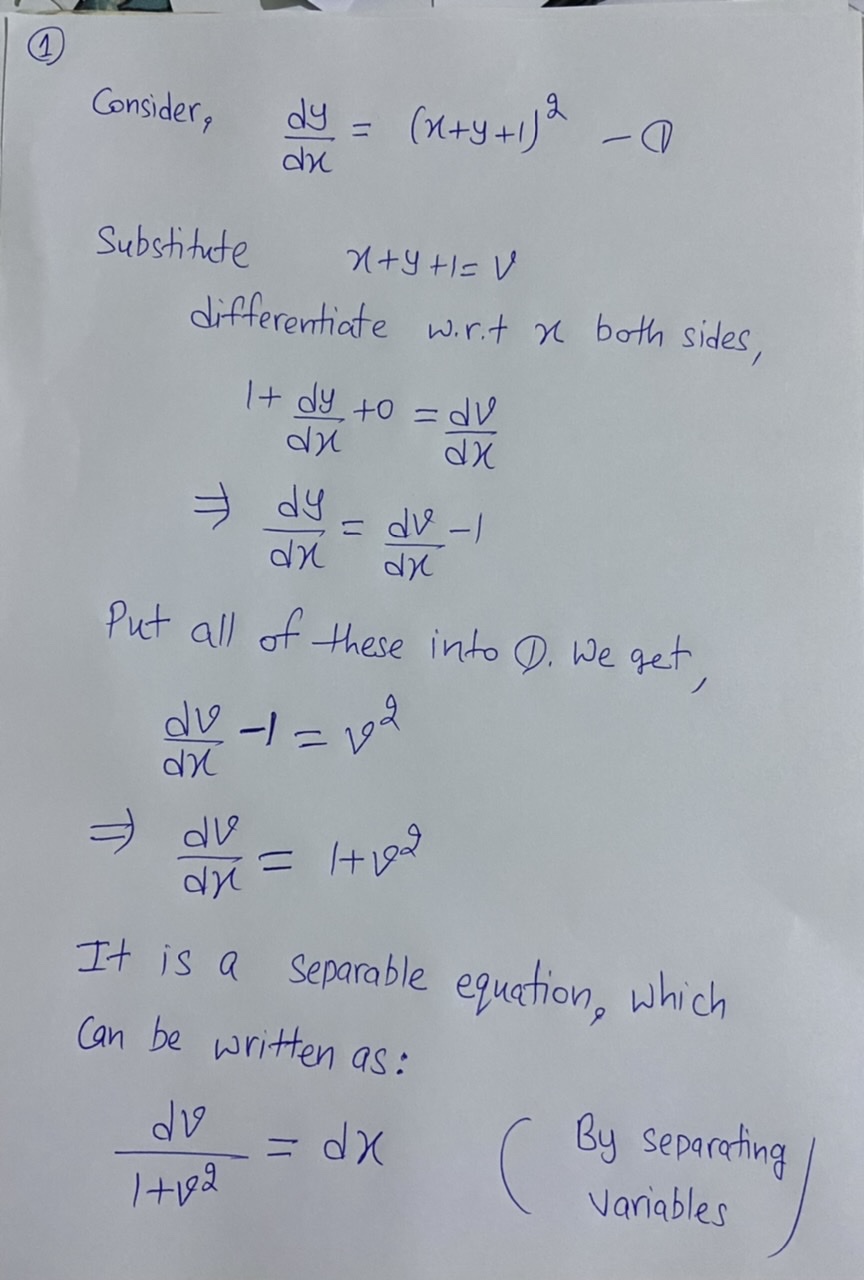 ①
Consider, dy/dx = (x+y+1)² – ①
Substitute x+y+1= v
differentiate w.r.t x both sides,
1+ dy/dx +0 = dv/dx
⇒ dy/dx = dv/dx –1
Put all of these into ①. We get,
dv/dx –1 = v²
⇒ dv/dx = 1+v²
It is a separable equation, which
Can be written as:
dv/1+v² = dx (By separating
variables)